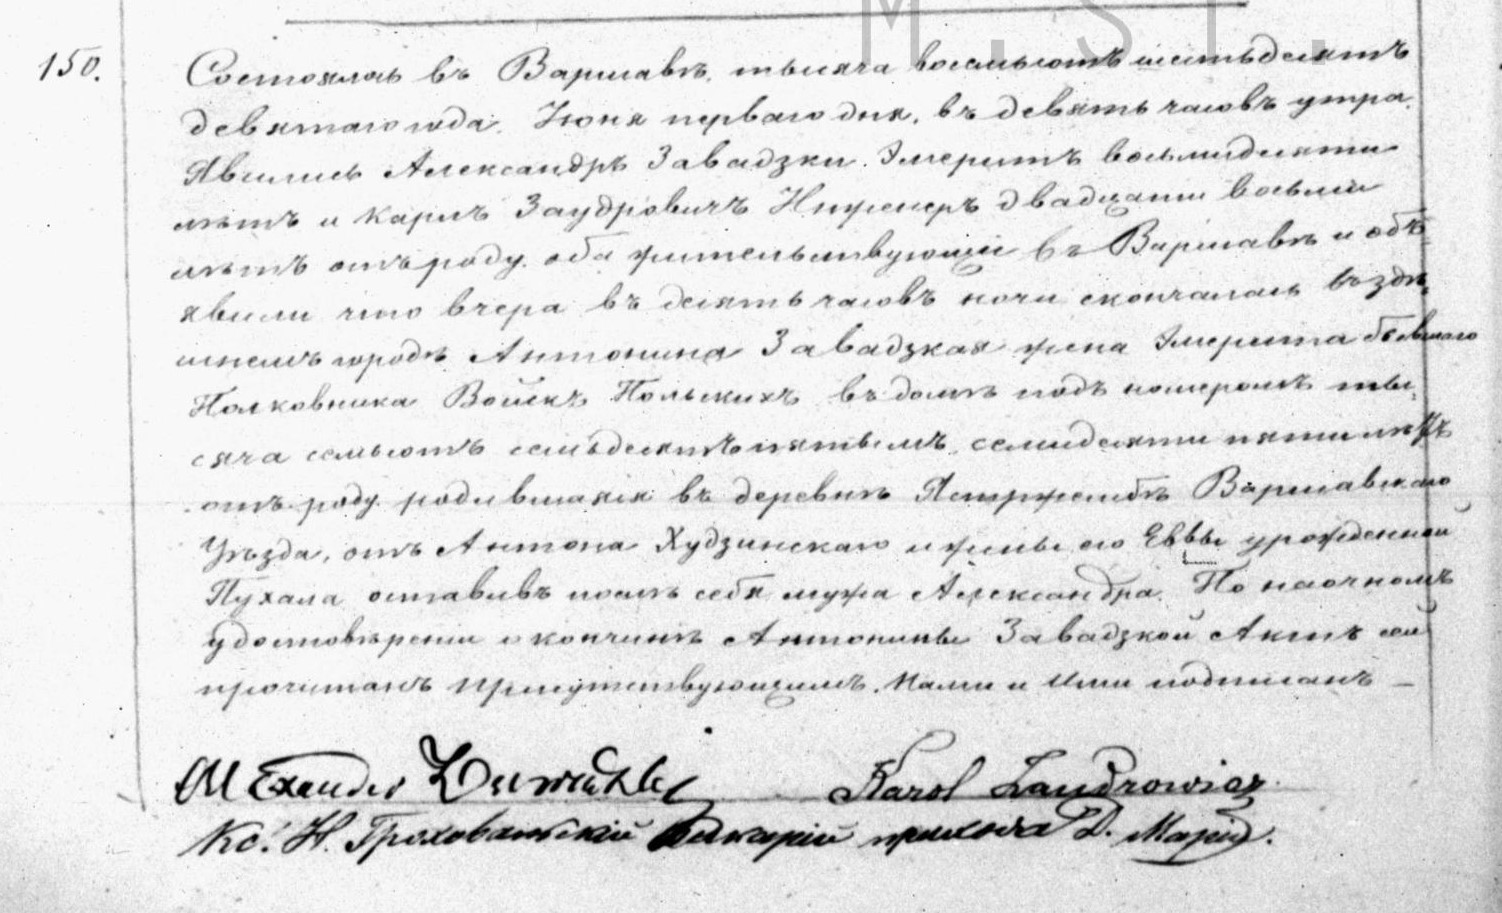 M.ST.
150.
Состоялось въ Варшавѣ, тысяча восемьсотъ шестьдесятъ
девятаго года, Іюня перваго дня, въ девять часовъ утра.
Явились Александръ Завадзки. Эмеритъ восьмидесяти
лѣтъ и Карлъ Заудровичъ Инженеръ двадцати восьми
лѣтъ отъ роду, оба жительствующіе въ Варшавѣ и объ=
явили что вчера въ десять часовъ ночи скончалась въ здѣ=
шнемъ городѣ Антонина Завадзкая жена Эмерита бывшаго
Полковника Войскъ Польскихъ въ домѣ подъ номеромъ ты=
сяча семьсотъ семьдесятъ пятымъ, семидесяти пяти лѣтъ
отъ роду родившаяся въ деревнѣ Ястржембѣ Варшавскаго
Уѣзда, отъ Антона Худзинскаго и жены его Еввы урожденной
Пухала оставивъ послѣ себя мужа Александра. По наочномъ
удостовѣреніи о кончинѣ Антонины Завадзкой Актъ сей
прочитанъ присутствующимъ, Нами и Ими подписанъ —
Alexander Karol Zaudrowicz
Кс. Н. Викарій прихода Д. Маріи.